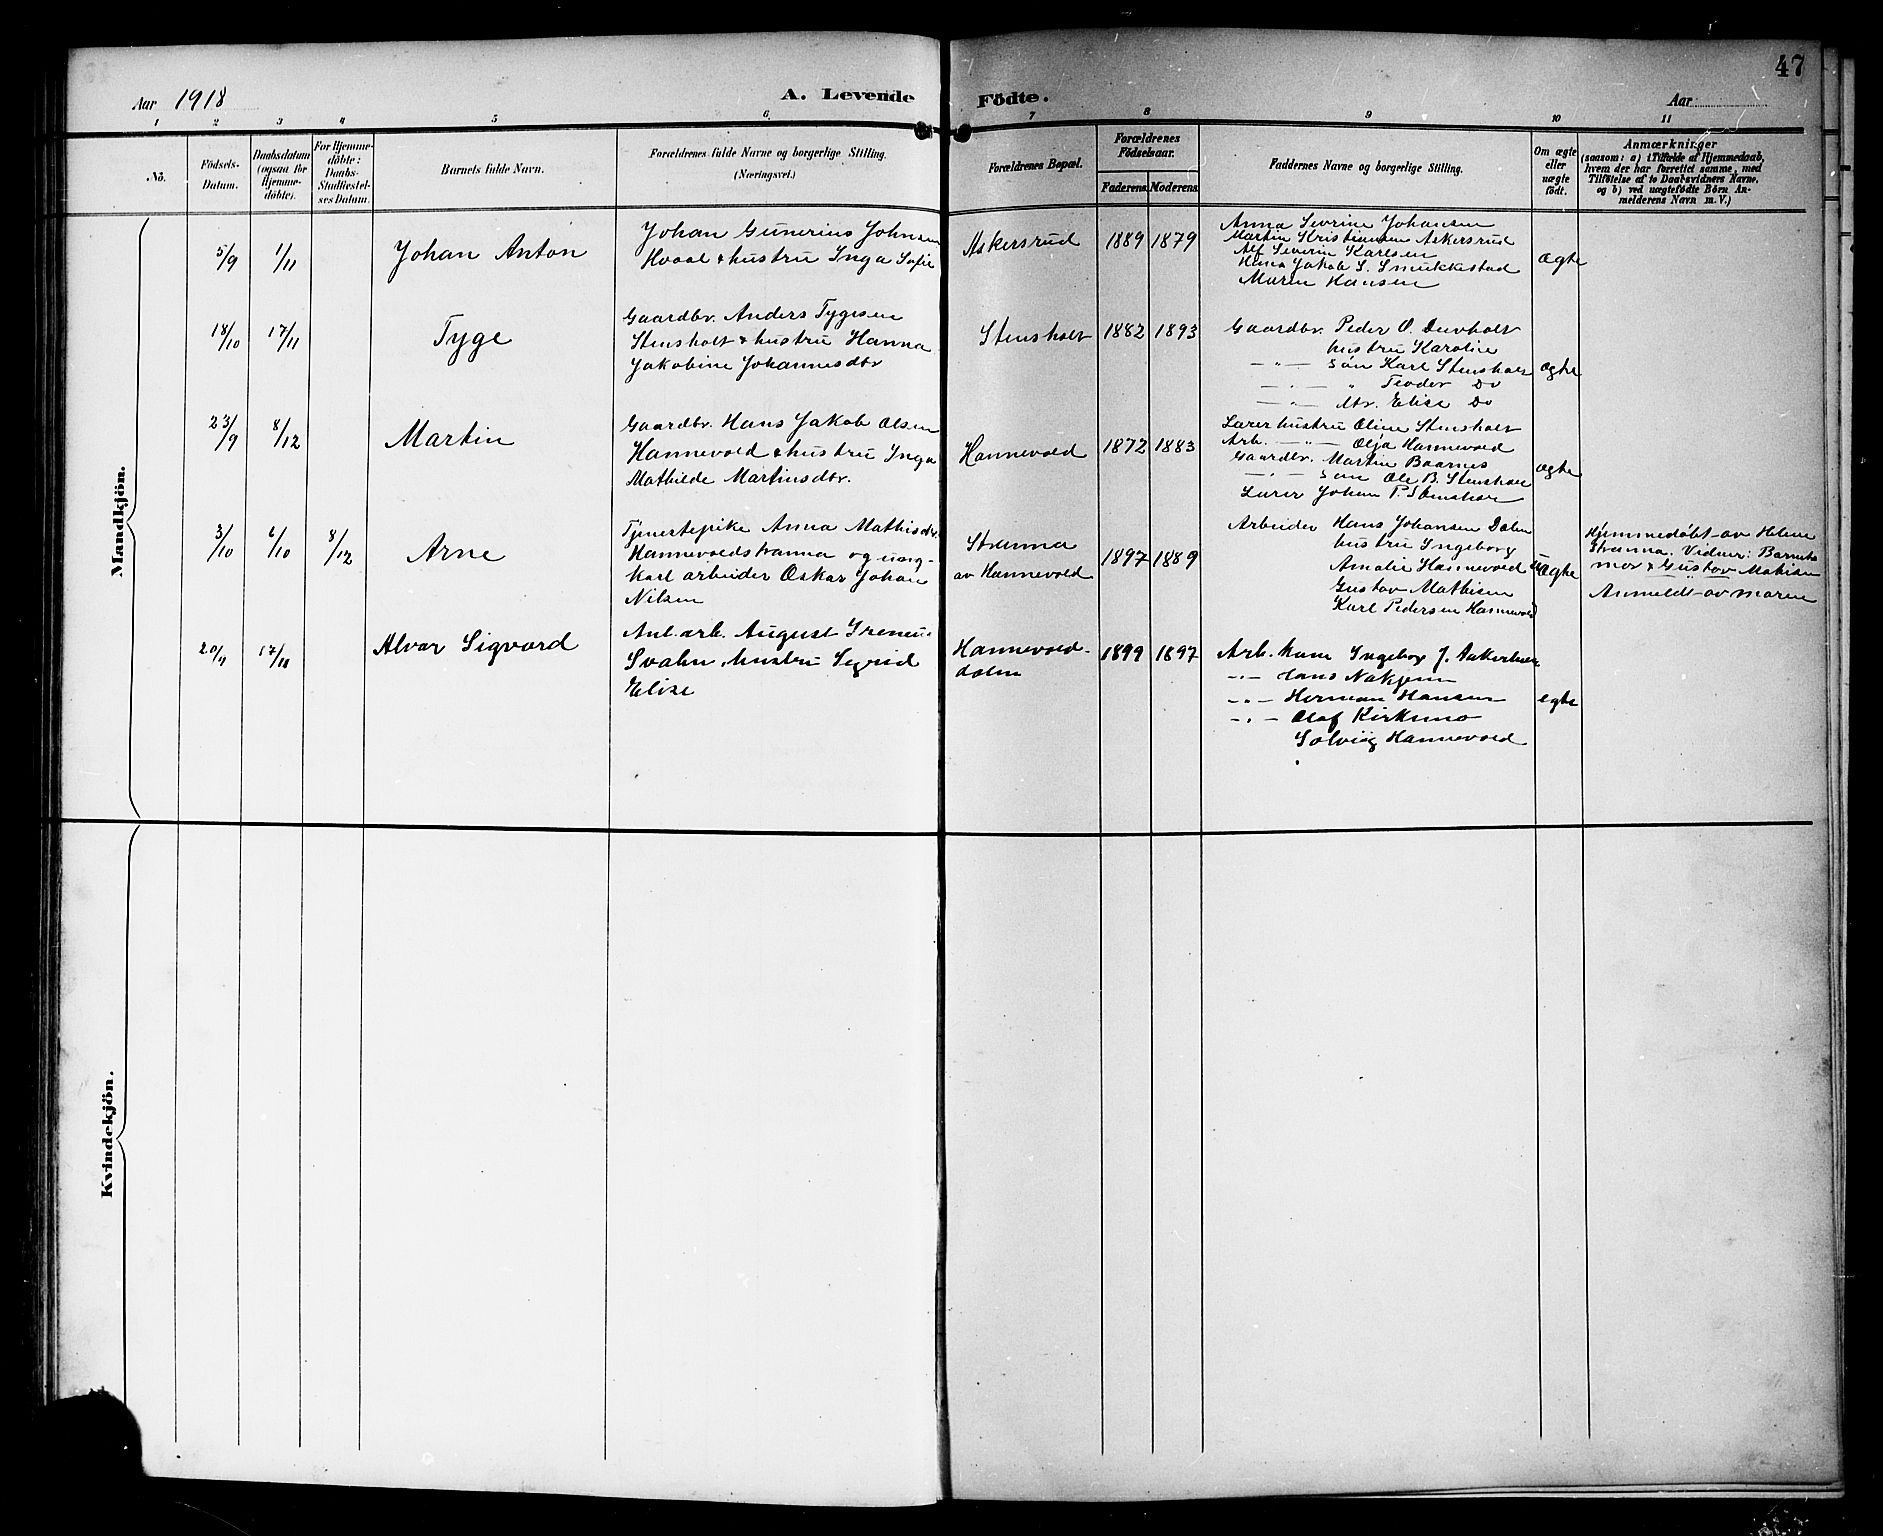 47
Aar 1918
A. Levende
Födte.
Aar
1 2 3 4 5 6 7 8 9 10 11
No.
Födsels-
Datum.
Daabsdatum
(ogsaa for
Hjemme-
döbte).
For Hjemme-
döbte:
Daabs-
Stadfæstel-
ses Datum.
Barnets fulde Navn.
Forældrenes fulde Navne og borgerlige Stilling.
(Næringsvei.)
Forældrenes Bopæl.
Forældrenes
Födselsaar.
Faderens. Moderens.
Faddernes Navne og borgerlige Stilling.
Om ægte
eller
uægte
födt.
Anmærkninger
(saasom: a) i Tilfælde af Hjemmedaab,
hvem der har forrettet samme, med
Tilföielse af to Daabsvidners Navne,
og b) ved uægtefödte Börn An-
melderens Navn m. V.)
Mandkjön.
5/9 1/11
Johan Anton
Johan Gunerius Johnsen
Hvaal & hustru Inga Sofie
Askersrud
1889 1879
Anna Sevrine Johansen
Martin Kristiansen Askersrud
Alf Severin Karlsen
Hans Jakob S. Smukkestad
Maren Hansen
Ægte
18/10 17/11
Tyge
Gaardbr. Anders Tygesen
Stensholt & hustru Hanna
Jakobine Johannesdtr
Stensholt
1882 1893
Gaardbr. Peder O. Duvholt
hustru Karoline
— " — Sön Karl Stensholt
— " — " Teodor Do
— " — dtr. Elise Do
ægte
23/9 8/12
Martin
Gaardbr. Hans Jakob Olsen
Hannevold & hustru Inga
Mathilde Martinsdtr.
Hannevold
1872 1883
Lærer hustru Oline Stensholt
Arb. — " — Olga Hannevold
Gaardbr. Martin Baarnes
— " — Sön Ole B. Stensholt
Lærer Johan P. Stensholt
ægte
3/10 6/10 8/12
Arne
Tjenestepike Anna Mathisdtr.
Hannevoldstranna og ung-
karl arbeider Oskar Johan
Nilsen
Stranna
av Hannevold
1897 1889
Arbeider Hans Johansen Dalen
hustru Ingeborg
Amalie Hannevold
Gustav Mathisen
Karl Pedersen Hannevold
uægte
Hjemmedöbt av Helene
Stranna. Vidner: Barnets
mor & Gustav Matisen
Anmeldt av moren
20/9 17/11
Alvar Sigvard
Anl. arb. August Ireneus
Svahn, hustru Sigrid
Elise
Hannevold-
dalen
1899 1897
Arb. kone Ingeborg J.
— " — Hans Nakjem
— " — Herman Hansen
— " — Olaf Kirkemo
Solveig Hannevold
egte
Kvindekjön.